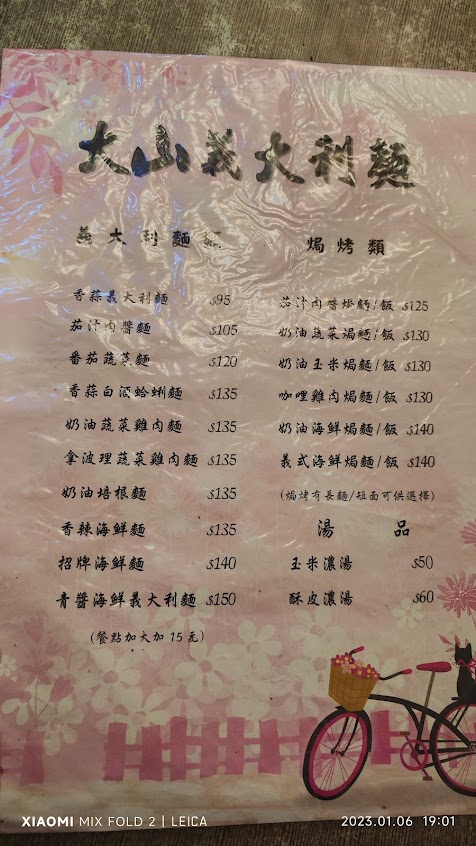 大山義大利麵
義大利麵類
香蒜義大利麵 $95
茄汁肉醬麵 $105
番茄蔬菜麵 $120
香蒜白酒蛤蜊麵 $135
奶油蔬菜雞肉麵 $135
拿波理蔬菜雞肉麵 $135
奶油培根麵 $135
香辣海鮮麵 $135
招牌海鮮麵 $140
青醬海鮮義大利麵 $150
(餐點加大加 15 元)
焗烤類
茄汁肉醬焗麵/飯 $125
奶油蔬菜焗麵/飯 $130
奶油玉米焗麵/飯 $130
咖哩雞肉焗麵/飯 $130
奶油海鮮焗麵/飯 $140
義式海鮮焗麵/飯 $140
(焗烤有長麵/短面可供選擇)
湯 品
玉米濃湯 $50
酥皮濃湯 $60
XIAOMI MIX FOLD 2 | LEICA
2023.01.06 19:01